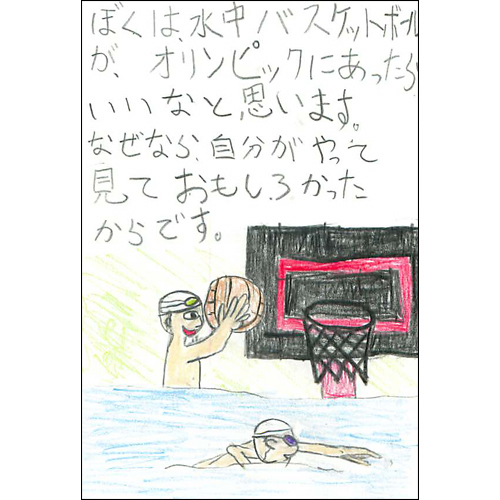 ぼくは、水中バスケットボール
が、オリンピックにあったら
いいなと思います。
なぜなら、自分がやって
見ておもしろかった
からです。